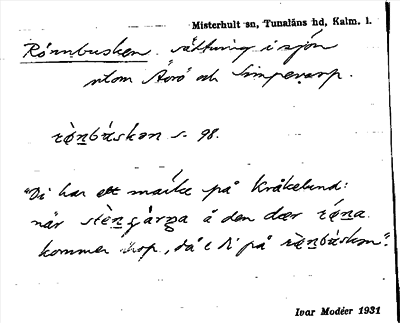 Misterhult sn, Tunaläns hd, Kalm. l.
Rönnbusken. sättning i sjön
utom Äørö och Simpevarp.
rø̀nbúskən s. 98.
"Di har ett märke på Kråkelund:
når stèngàrna å den dær rǿna
kommer ihop, då e di på rø̀nbúskən".
Ivar Modéer 1931